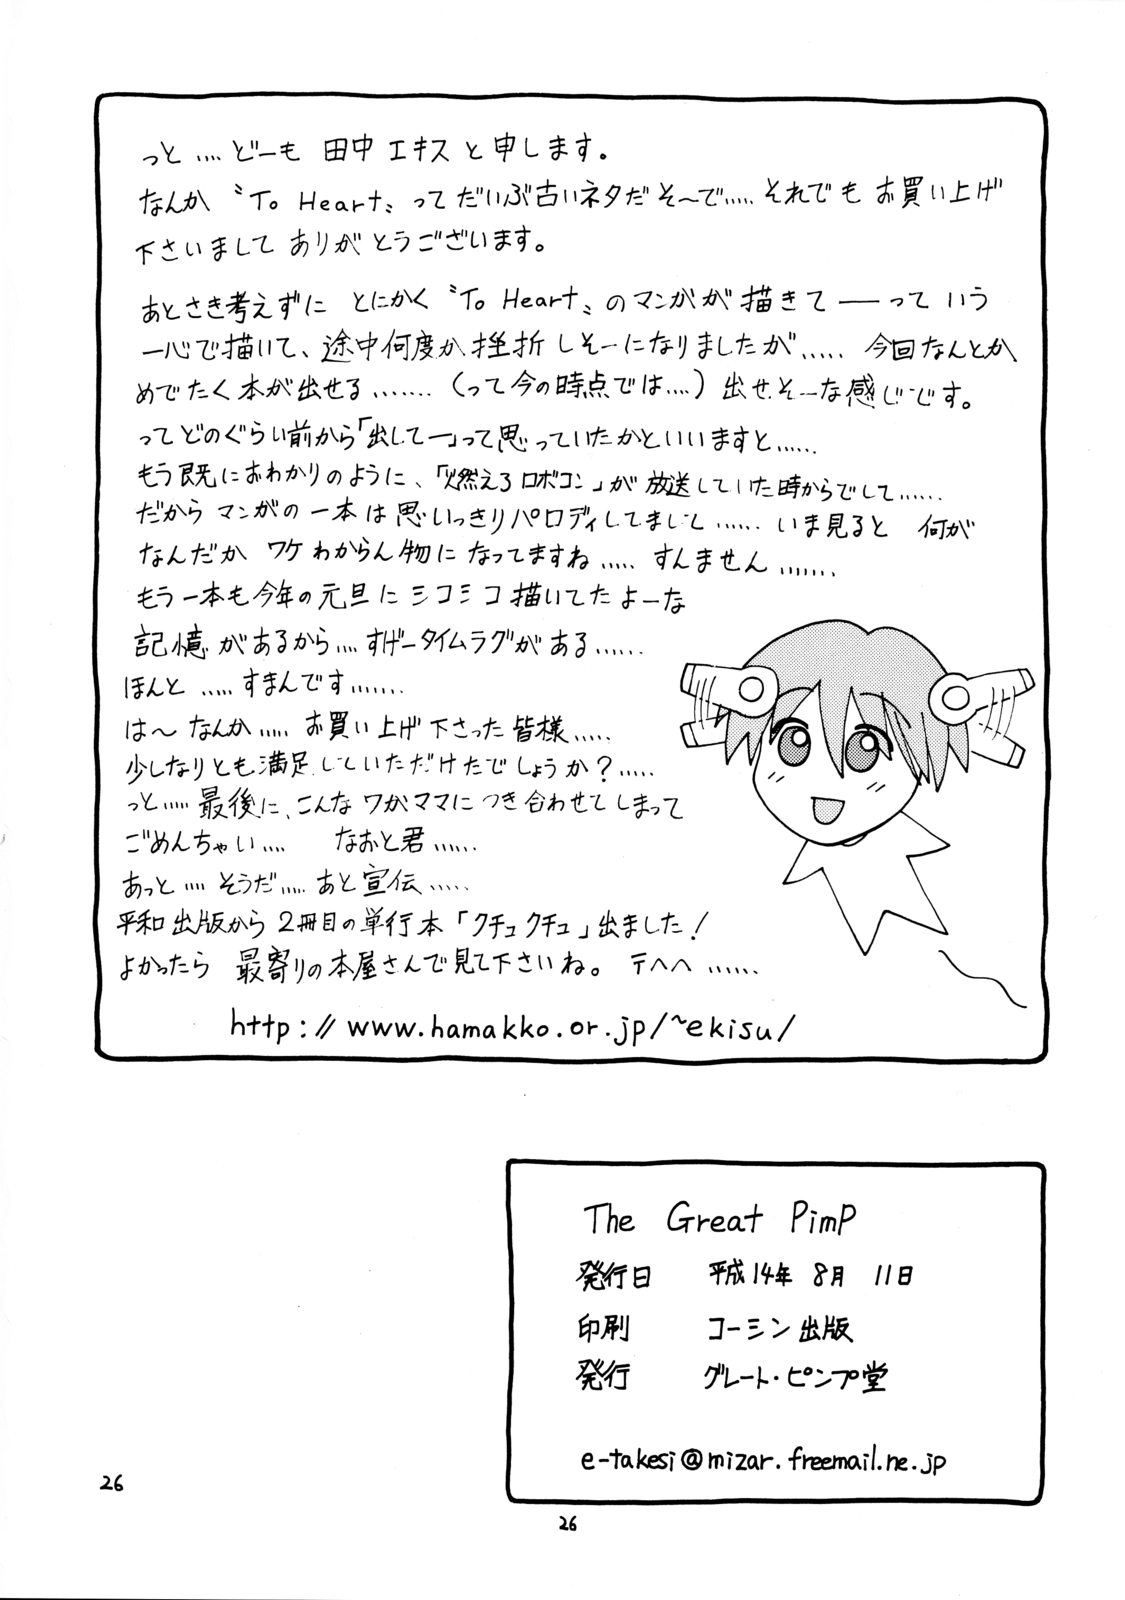 っと....どーも 田中エキスと申します。
なんか 〝To Heart〟ってだいぶ古いネタだそ〜で.....それでも お買い上げ
下さいまして ありがとうございます。
あとさき考えずに とにかく〝To Heart〟のマンガが描きてーーっていう
一心で描いて、途中何度か挫折しそーになりましたが..... 今回なんとか
めでたく本が出せる.......(って今の時点では....)出せそーな感じです。
ってどのぐらい前から「出してー」って思っていたかといいますと......
もう既におわかりのように、「燃えろロボコン」が放送していた時からでして......
だからマンガの一本は思いっきりパロディしてまして...... いま見ると 何が
なんだか ワケわからん物になってますね..... すんません.......
もう一本も今年の元旦にシコシコ描いてたよーな
記憶があるから....すげータイムラグがある......
ほんと .....すまんです.......
は〜 なんか..... お買い上げ下さった皆様.....
少しなりとも満足していただけたでしょうか?.....
っと.....最後に、こんなワガママにつき合わせてしまって
ごめんちゃい.... なおと君......
あっと....そうだ.....あと宣伝.....
平和出版から2冊目の単行本「クチュクチュ」出ました!
よかったら 最寄りの本屋さんで見て下さいね。テヘヘ......
http://www.hamakko.or.jp/~ekisu/
The Great PimP
発行日 平成14年 8月 11日
印刷 コーシン出版
発行 グレート・ピンプ堂
e-takesi@mizar.freemail.ne.jp
26
26